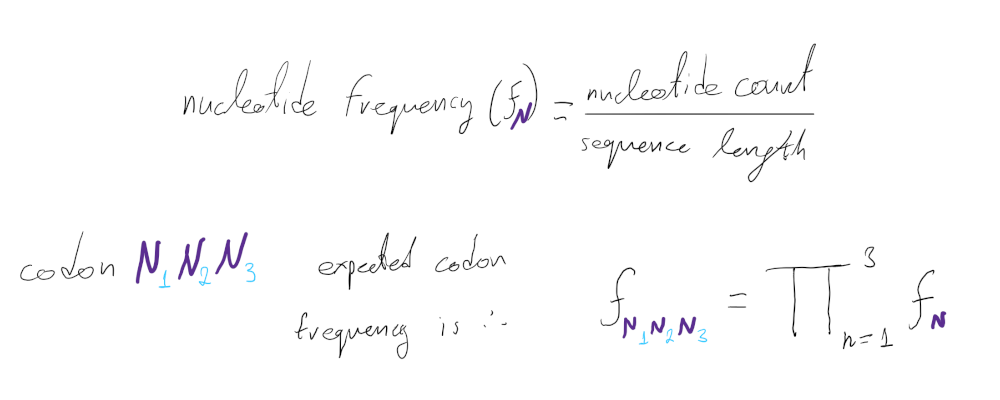 nucleotide frequency (f_N) = nucleotide count / sequence length
codon N_1 N_2 N_3 expected codon frequency is ∴ f_{N_1 N_2 N_3} = ∏_{n=1}^{3} f_N